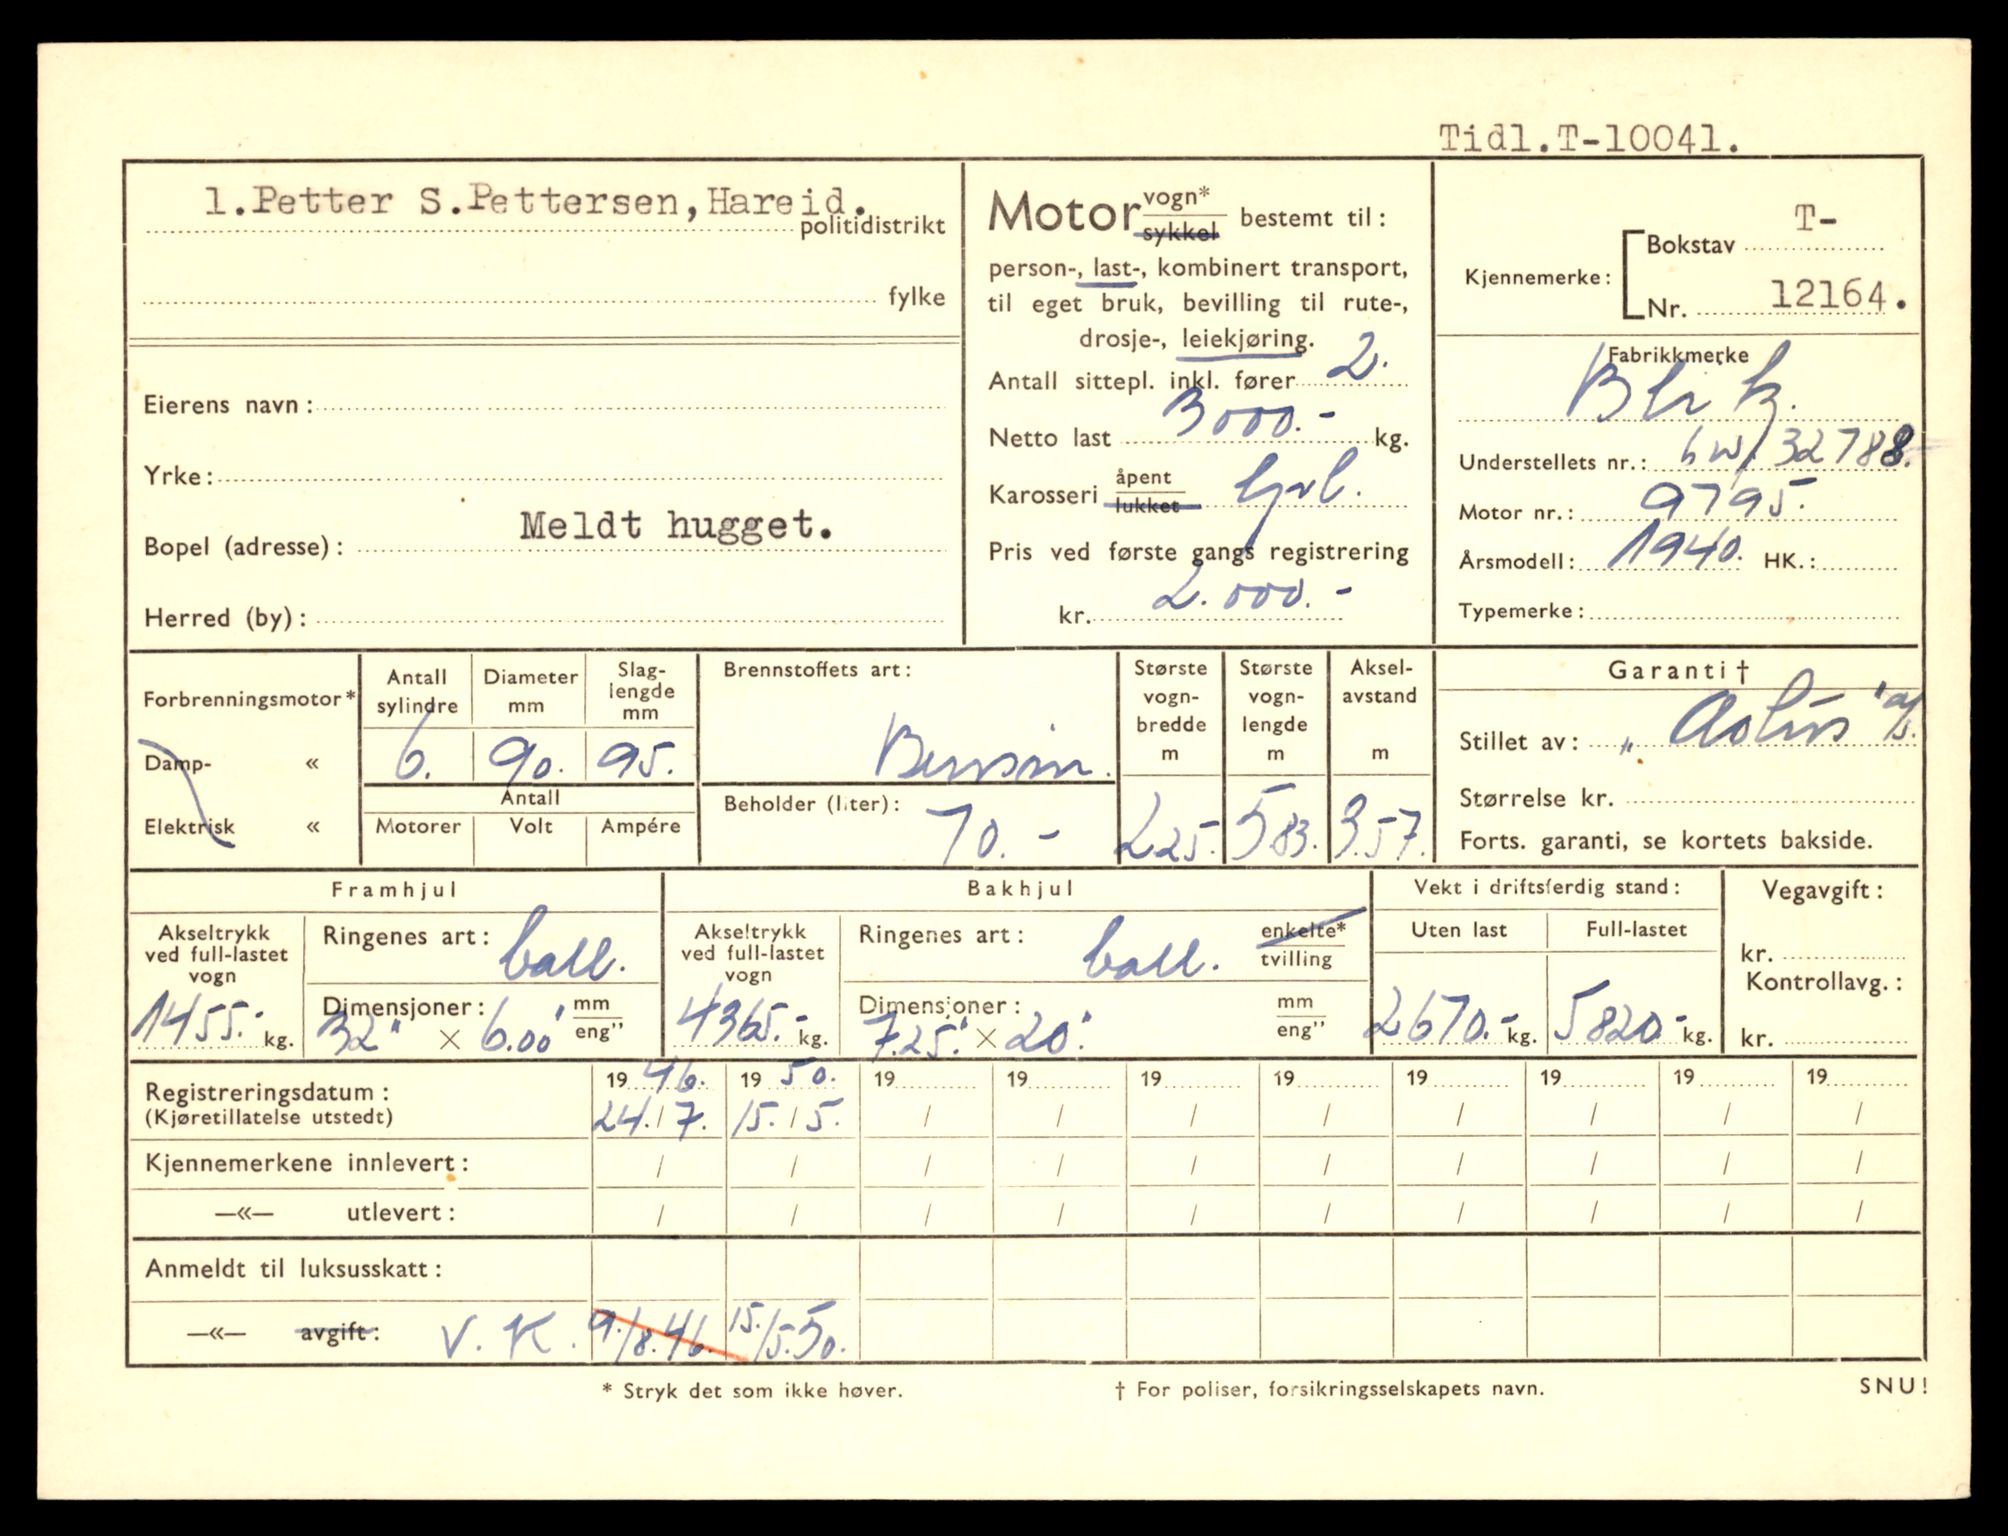 Tidl.T-10041.
1.Petter S.Pettersen,Hareid.
politidistrikt
fylke
Eierens navn:
Yrke:
Meldt hugget.
Bopel (adresse):
Herred (by):
Motor vogn*
sykkel bestemt til:
person-, last-, kombinert transport,
til eget bruk, bevilling til rute-,
drosje-, leiekjøring.
Antall sittepl. inkl. fører 2.
Netto last 3000.- kg.
Karosseri åpent
lukket
Pris ved første gangs registrering
kr. 2.000.-
Kjennemerke:
Bokstav T-
Nr. 12164.
Fabrikkmerke
Blitz.
Understellets nr.: 6W/32788.
Motor nr.: 9795.
Årsmodell: 1940. HK.:
Typemerke:
Forbrenningsmotor*
Damp- «
Elektrisk «
Antall sylindre
6.
Diameter mm
90.
Slag-
lengde
mm
95.
Antall
Motorer Volt Ampére
Brennstoffets art:
Bensin.
Beholder (liter):
70.-
Største
vogn-
bredde
m
2 25.
Største
vogn-
lengde
m
5 83.
Aksel-
avstand
m
3.57.
Garanti †
Stillet av: a/s.
Størrelse kr.
Forts. garanti, se kortets bakside.
Framhjul
Akseltrykk
ved full-lastet
vogn
1455.- kg.
Ringenes art: ball.
Dimensjoner: mm
32" × 6.00" eng"
Bakhjul
Akseltrykk
ved full-lastet
vogn
4365.- kg.
Ringenes art: ball. enkelte*
tvilling
Dimensjoner: mm
7.25." × 20." eng"
Vekt i driftsferdig stand:
Uten last
2670.- kg.
Full-lastet
5820.- kg.
Vegavgift:
kr.
Kontrollavg.:
kr.
Registreringsdatum: 19 46. 19 50. 19 19 19 19 19 19 19 19
(Kjøretillatelse utstedt) 24./7. 15./5. / / / / / / / /
Kjennemerkene innlevert: / / / / / / / / / /
—«— utlevert: / / / / / / / / / /
Anmeldt til luksusskatt:
—«— avgift: V. K. 9./8.46. 15./5.50.
* Stryk det som ikke høver.
† For poliser, forsikringsselskapets navn.
SNU!